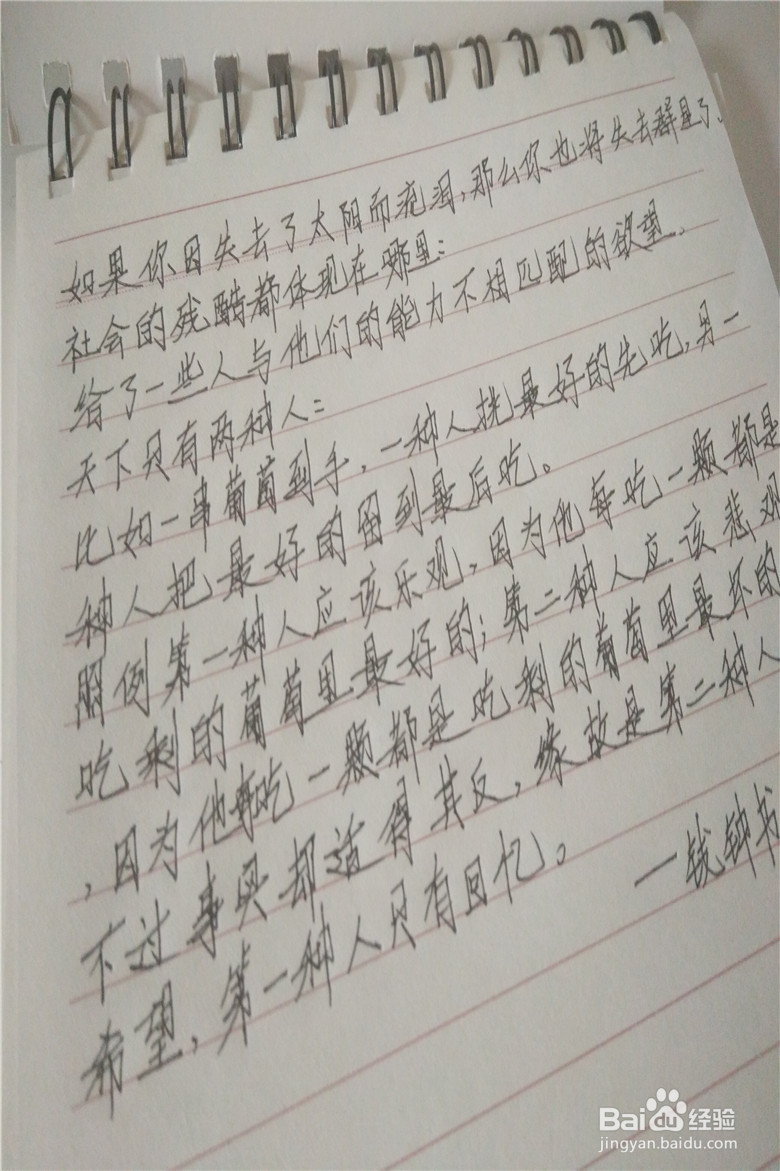 如果你因失去了太阳而流泪,那么你也将失去群星了、
社会的残酷都体现在哪里:
给了一些人与他们的能力不相匹配的欲望、
天下只有两种人:
比如一串葡萄到手,一种人挑最好的先吃,另一
种人把最好的留到最后吃。
照例第一种人应该乐观,因为他每吃一颗都是
吃剩的葡萄里最好的;第二种人应该悲观
,因为他每吃一颗都是吃剩的葡萄里最坏的
不过事实却适得其反,缘故是第二种人
希望,第一种人只有回忆。 一钱钟书
Baidu 经验
jingyan.baidu.com